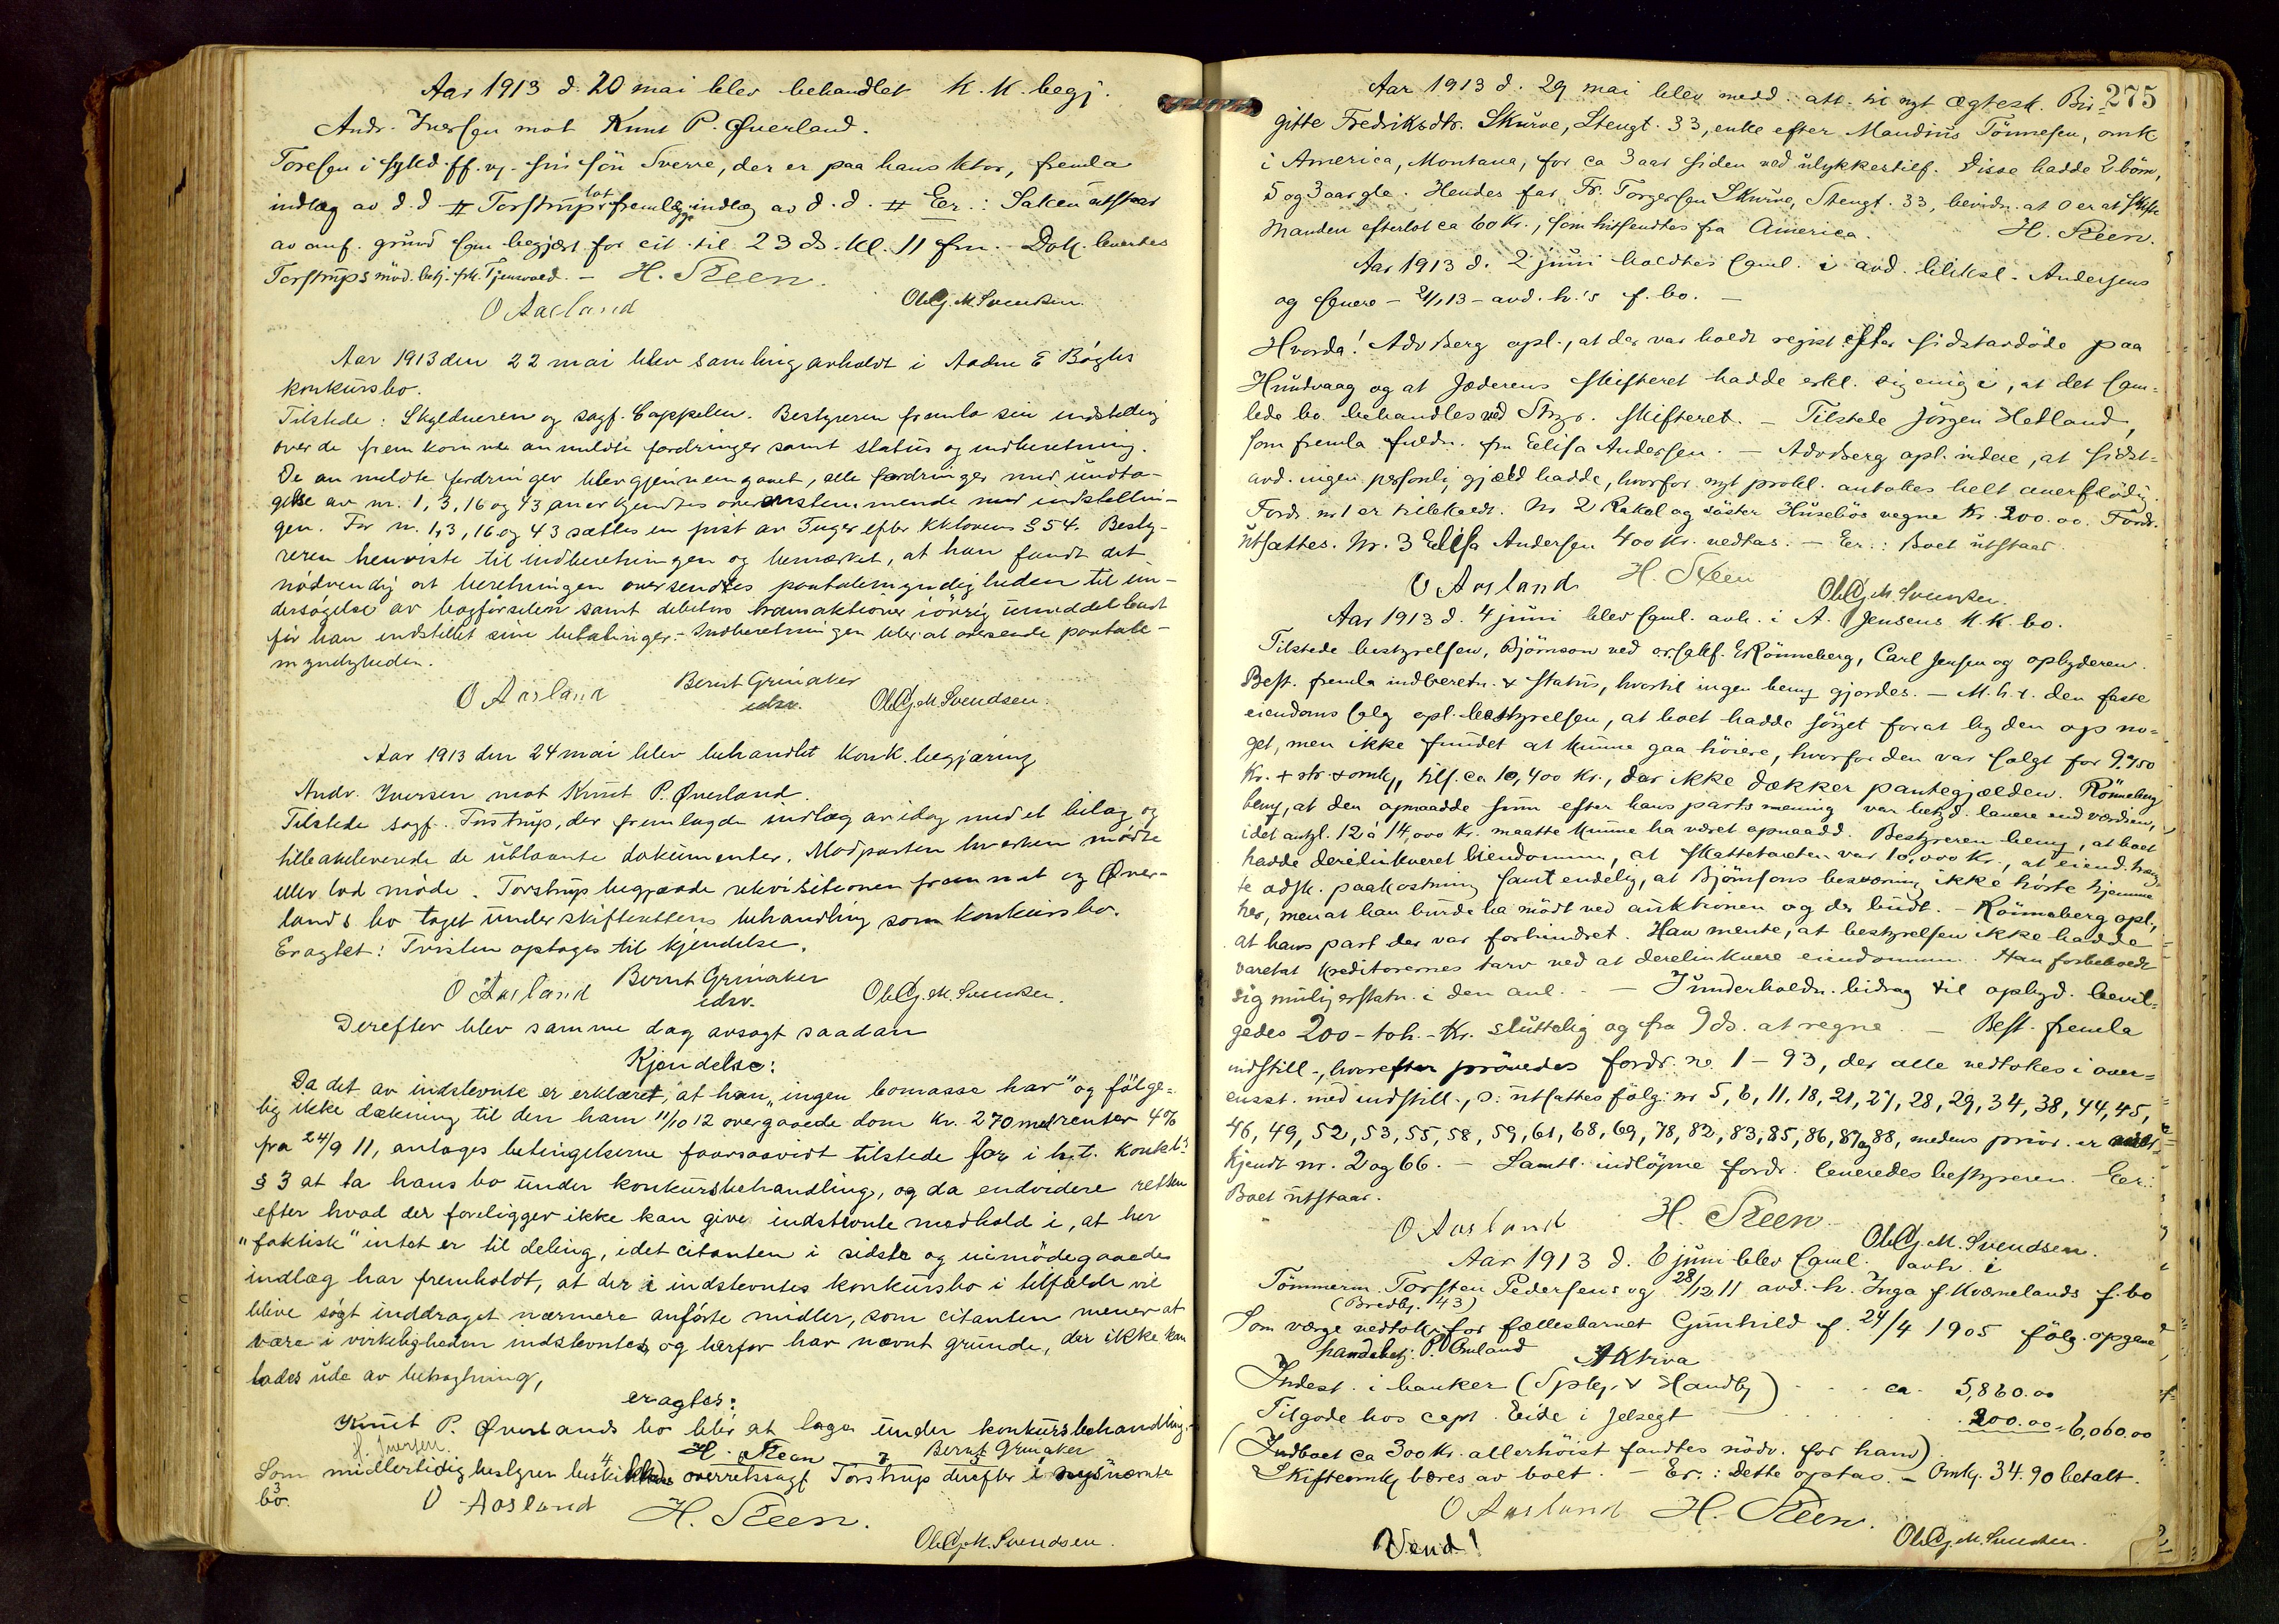 Aar 1913 d. 20 mai blev behandlet K. K. begj.
Andr. Iversen mot Knut P. Øverland.
Toresen i sykd. ff. v. sin sön Sverre, der er paa hans ktor, fremla
indlæg av d. d # Torstrup lot fremlægge indlæg av d. d. # Er.: Saken utstaar
av anf. grund som begjært for cit. til 23 ds. kl. 11 fm. Dok. leverdes
Torstrups möd. betj. frk. Tjensvold. - H. Steen.
O Aasland Ole G. M. Svendsen.
Aar 1913 den 22 mai blev samling avholdt i Aadne E Bögles
konkursbo.
Tilstede: Skyldneren og sagf. Cappelen. Bestyreren fremla sin indstilling
over de fremkomne anmeldte fordringer samt status og indberetning.
De anmeldte fordringer blev gjennemgaaet, alle fordringer med undta-
gelse av nr. 1, 3, 16 og 43 anerkjendtes overenstemmende med indstillin-
gen. For nr. 1, 3, 16 og 43 sættes en frist av 3 uger efter kklovens § 54. Besty-
reren henviste til indberetningen og bemerket, at han fandt det
nödvendig at beretningen oversendtes paatalemyndigheden til un-
dersögelse av bogförselen samt debitors transaktioner iövrig umiddelbart
för han indstillet sine betalinger. - Indberetningen blev at oversende paatale-
myndigheden.
O Aasland Bernt Grinaker edsv. Ole G. M. Svendsen.
Aar 1913 den 24 mai blev behandlet konk. begjæring
Andr. Iversen mot Knut P. Øverland.
Tilstede sagf. Torstrup, der fremlagde indlæg av idag med et bilag og
tilbakeleverede de utlaante dokumenter. Modparten hverken mödte
eller lod möde. Torstrup begjærede rekvisitionen fremmet og Øver-
lands bo taget under skifterettens behandling som konkursbo.
Eragtet: Tvisten optages til kjendelse.
O Aasland Bernt Grinaker edsv. Ole G. M. Svendsen.
Derefter blev samme dag avsagt saadan
Kjendelse:
Da det av indstevnte er erklæret, at han „ingen bomasse har" og fölge-
lig ikke dækning til den ham 11/10 12 overgaaede dom kr. 270 med renter 4%
fra 24/9 11, antages betingelserne forsaavidt tilstede for i h. t. konkl.s
§ 3 at ta hans bo under konkursbehandling, og da endvidere retten
efter hvad der foreligger ikke kan give indstevnte medhold i, at her
"faktisk" intet er til deling, idet citanten i sidste og uimödegaaede
indlæg har fremholdt, at der i indstevntes konkursbo i tilfælde vil
blive sögt inddraget nærmere anförte midler, som citanten mener at
være i virkeligheden indstevntes, og herfor har nævnt grunde, der ikke kan
lades ude av betragtning,
eragtes:
Knut P. Øverlands bo blir at tage under konkursbehandling.
H. Iversen. H. Steen Bernt Grinaker
Som midlertidig bestyrer beskikkedes overretssagf. Torstrup derefter i nysnævnte
bo.
O Aasland H. Steen.
Ole G. M. Svendsen.
275
Aar 1913 d. 29 mai blev medd. att. til nyt ægtesk. Bir-
gitte Fredriksdtr. Skurve, Stengt. 33, enke efter Maudius Tönnesen, omk
i America, Montana, for ca 3 aar siden ved ulykkestilf. Disse hadde 2 börn,
5 og 3 aar gle. Hendes far, Fr. Torgersen Skurve, Stengt. 33, bevidn. at 0 er at skifte
Manden efterlot ca 60 Kr., som hitsendtes fra America. H. Steen.
Aar 1913 d. 2 juni holdtes saml. i avd. Andersens
og senere - 2/1 13 - avd. h.'s f. bo. -
Hvorda! Adv Berg opl., at der var holdt regist efter sidstavdöde paa
Hundvaag og at Jæderens skifteret hadde erkl. sig enig i, at det sam-
lede bo behandles ved Stvgr. skifteret. - Tilstede Jörgen Hetland,
som fremla fuldm. fra Elisa Andersen. - Adv Berg opl. videre, at sidst-
avd. ingen personlig gjæld hadde, hvorfor nyt prokl. antokes helt overflödig.
Fordr. nr 1 er tilbkaldt. Nr 2 Rakel og söster Husebös vegne kr. 200.00. Fordr.
utsattes. Nr. 3 Elisa Andersen 400 Kr. vedtas. - Er.: Boet utstaar.
O Aasland H. Steen Ole G. M. Svendsen.
Aar 1913 d. 4 juni blev saml. avh. i A. Jensens K. K. bo.
Tilstede bestyrelsen, Björnson ved o.r.sakf. E Rönneberg, Carl Jensen og opbyderen.
Best. fremla indberetn. & status, hvortil ingen bem. gjordes. - M. h. t. den faste
eiendoms salg opl. bestyrelsen, at boet hadde sörget for at by den op no-
get, men ikke fundet at kunne gaa höiere, hvorfor den var solgt for 9,750
Kr. + str + omk., tils. ca 10,400 Kr., der ikke dækker pantegjælden. Rönneberg
bem., at den opnaadde sum efter hans parts mening var betyd. lavere end værdien,
idet antgl. 12 à 14,000 Kr. maatte kunne ha været opnaadd. Bestyreren bem., at boet
hadde derelinkveret eiendommen, at skattetaksten var 10,000 Kr., at eiend. træng-
te adsk. paakostning samt endelig, at Björnsons besværing ikke hörte hjemme
her, men at han burde ha mödt ved auktionen og der budt. - Rönneberg opl.,
at hans part der var forhindret. Han mente, at bestyrelsen ikke hadde
varetat kreditorernes tarv ved at derelinkvere eiendommen. Han forbeholdt
sig mulig erstatn. i den anl. - I underholdn. bidrag til opbyd. bevil-
gedes 200 - toh. - Kr. sluttelig og fra 9 ds. at regne. - Best. fremla
indstill., hvorefter prövedes fordr. nr 1 - 93, der alle vedtokes i over-
ensst. med indstill., o: utsattes fölg. nr 5, 6, 11, 18, 21, 27, 28, 29, 34, 38, 44, 45,
46, 49, 52, 53, 55, 58, 59, 61, 68, 69, 78, 82, 83, 85, 86, 87 og 88, medens prior. er
kjendt nr. 2 og 66. - Samtl. indlöpne fordr. leveredes bestyreren. Er.:
Boet utstaar.
O Aasland H. Steen Ole G. M. Svendsen.
Aar 1913 d. 6 juni blev saml. avh. i
Tömmerm. Torsten Pedersens og 28/12 11 avd. h. Inga f. Kvernelands f. bo
(Bredbg. 43)
Som værge vedtok for fællesbarnet Gunhild f. 24/4 1905 fölg. opgave,
handelsbetj. P. Omland Aktiva
Indest. i banker (Spbg. & Handbg) . . . ca. 5,860.00
Tilgode hos capt. Eide i Jelsegt . . . 200.00 = 6,060.00
(Indboet ca 300 Kr. allerhöist fandtes nödv. for ham)
Skifteomk. bæres av boet. - Er.: Dette optas. - Omk. 34.90 betalt.
O Aasland H. Steen.
Vend! Ole G. M. Svendsen.